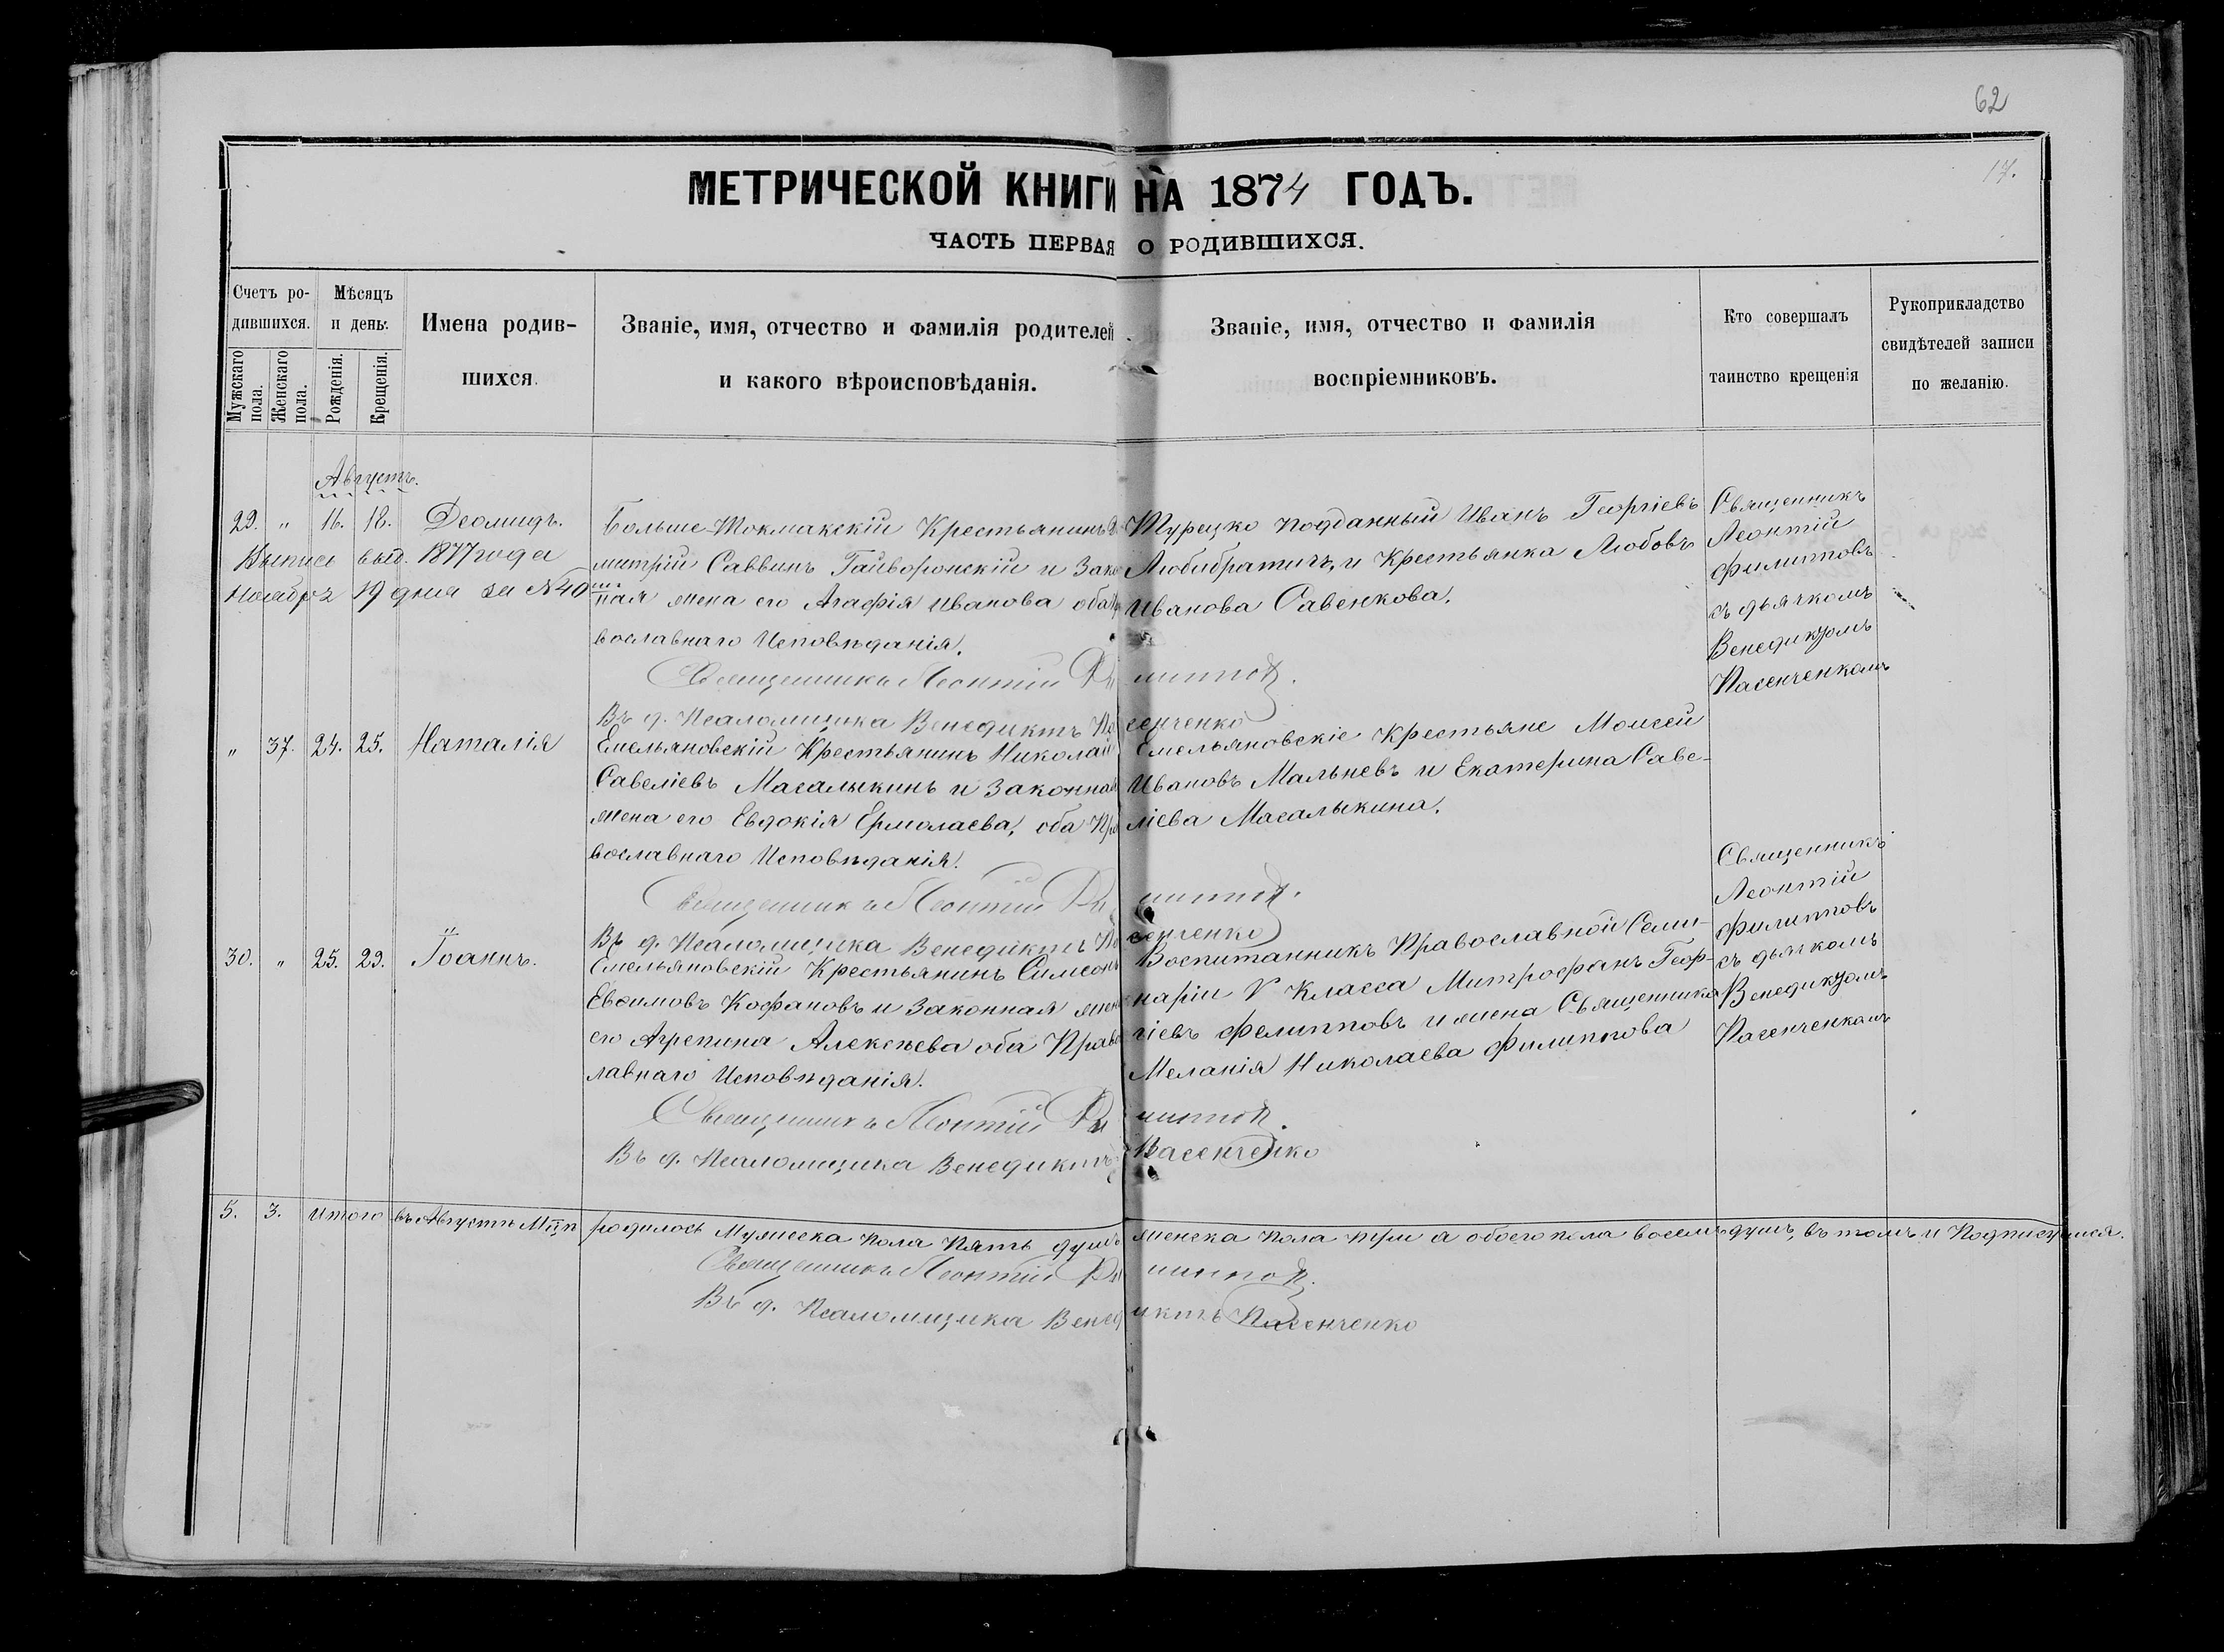 62
17.
МЕТРИЧЕСКОЙ КНИГИ НА 1874 ГОДЪ.
ЧАСТЬ ПЕРВАЯ О РОДИВШИХСЯ.
Счетъ ро-
дившихся.
Мужскаго
пола.
Женскаго
пола.
Мѣсяцъ
и день.
Рожденія.
Крещенія.
Имена родив-
шихся.
Званіе, имя, отчество и фамилія родителей
и какого вѣроисповѣданія.
Званіе, имя, отчество и фамилія
воспріемниковъ.
Кто совершалъ
таинство крещенія
Рукоприкладство
свидѣтелей записи
по желанію.
Августъ.
29. " 16. 18. Деомидъ.
Выпись выд. 1877 года
Ноября 19 дня за №40
Больше-Токмакскій Крестьянинъ Ди-
митрій Саввинъ Гайворонскій и Закон-
ная жена его Агафія Иванова оба
вославнаго Исповѣданія.
Турецко подданный Иванъ Георгіевъ
Любибратичъ, и Крестьянка Любовь
Иванова Савенкова.
Священникъ
Леонтій
Филипповъ
съ дьячкомъ
Венедиктомъ
Пасенченкомъ
Священникъ Леонтій Филипповъ.
Въ д. Псаломщика Венедиктъ Пасенченко
" 37. 24. 25. Наталія
Емельяновскій Крестьянинъ Николай
Савеліевъ Масалыкинъ и Законная
жена его Евдокія Ермолаева, оба Пра
вославнаго Исповѣданія.
Емельяновскіе Крестьяне Моисей
Ивановъ Мальневъ и Екатерина Саве-
ліева Масалыкина.
Священникъ
Леонтій
Филипповъ
съ дьячкомъ
Венедиктомъ
Пасенченкомъ
Священникъ Леонтій Филипповъ.
Въ д. Псаломщика Венедиктъ Пасенченко
30. " 25. 29. Іоаннъ.
Емельяновскій Крестьянинъ Симеонъ
Евѳимовъ Кофановъ и Законная жена
его Агрепина Алексѣева оба Правос
лавнаго Исповѣданія.
Воспитанникъ Православной Семи-
наріи V Класса Митрофанъ Геор-
гіевъ Фелипповъ и жена Священника
Меланія Николаева Филиппова
Священникъ Леонтій Филипповъ.
Въ д. Псаломщика Венедиктъ Пасенченко
5. 3. Итого въ Августѣ Мцѣ родилось Мужеска пола Пять душъ женска пола три а обоего пола восемь душъ, въ томъ и Подписуемся.
Священникъ Леонтій Филипповъ.
Въ д. Псаломщика Венедиктъ Пасенченко